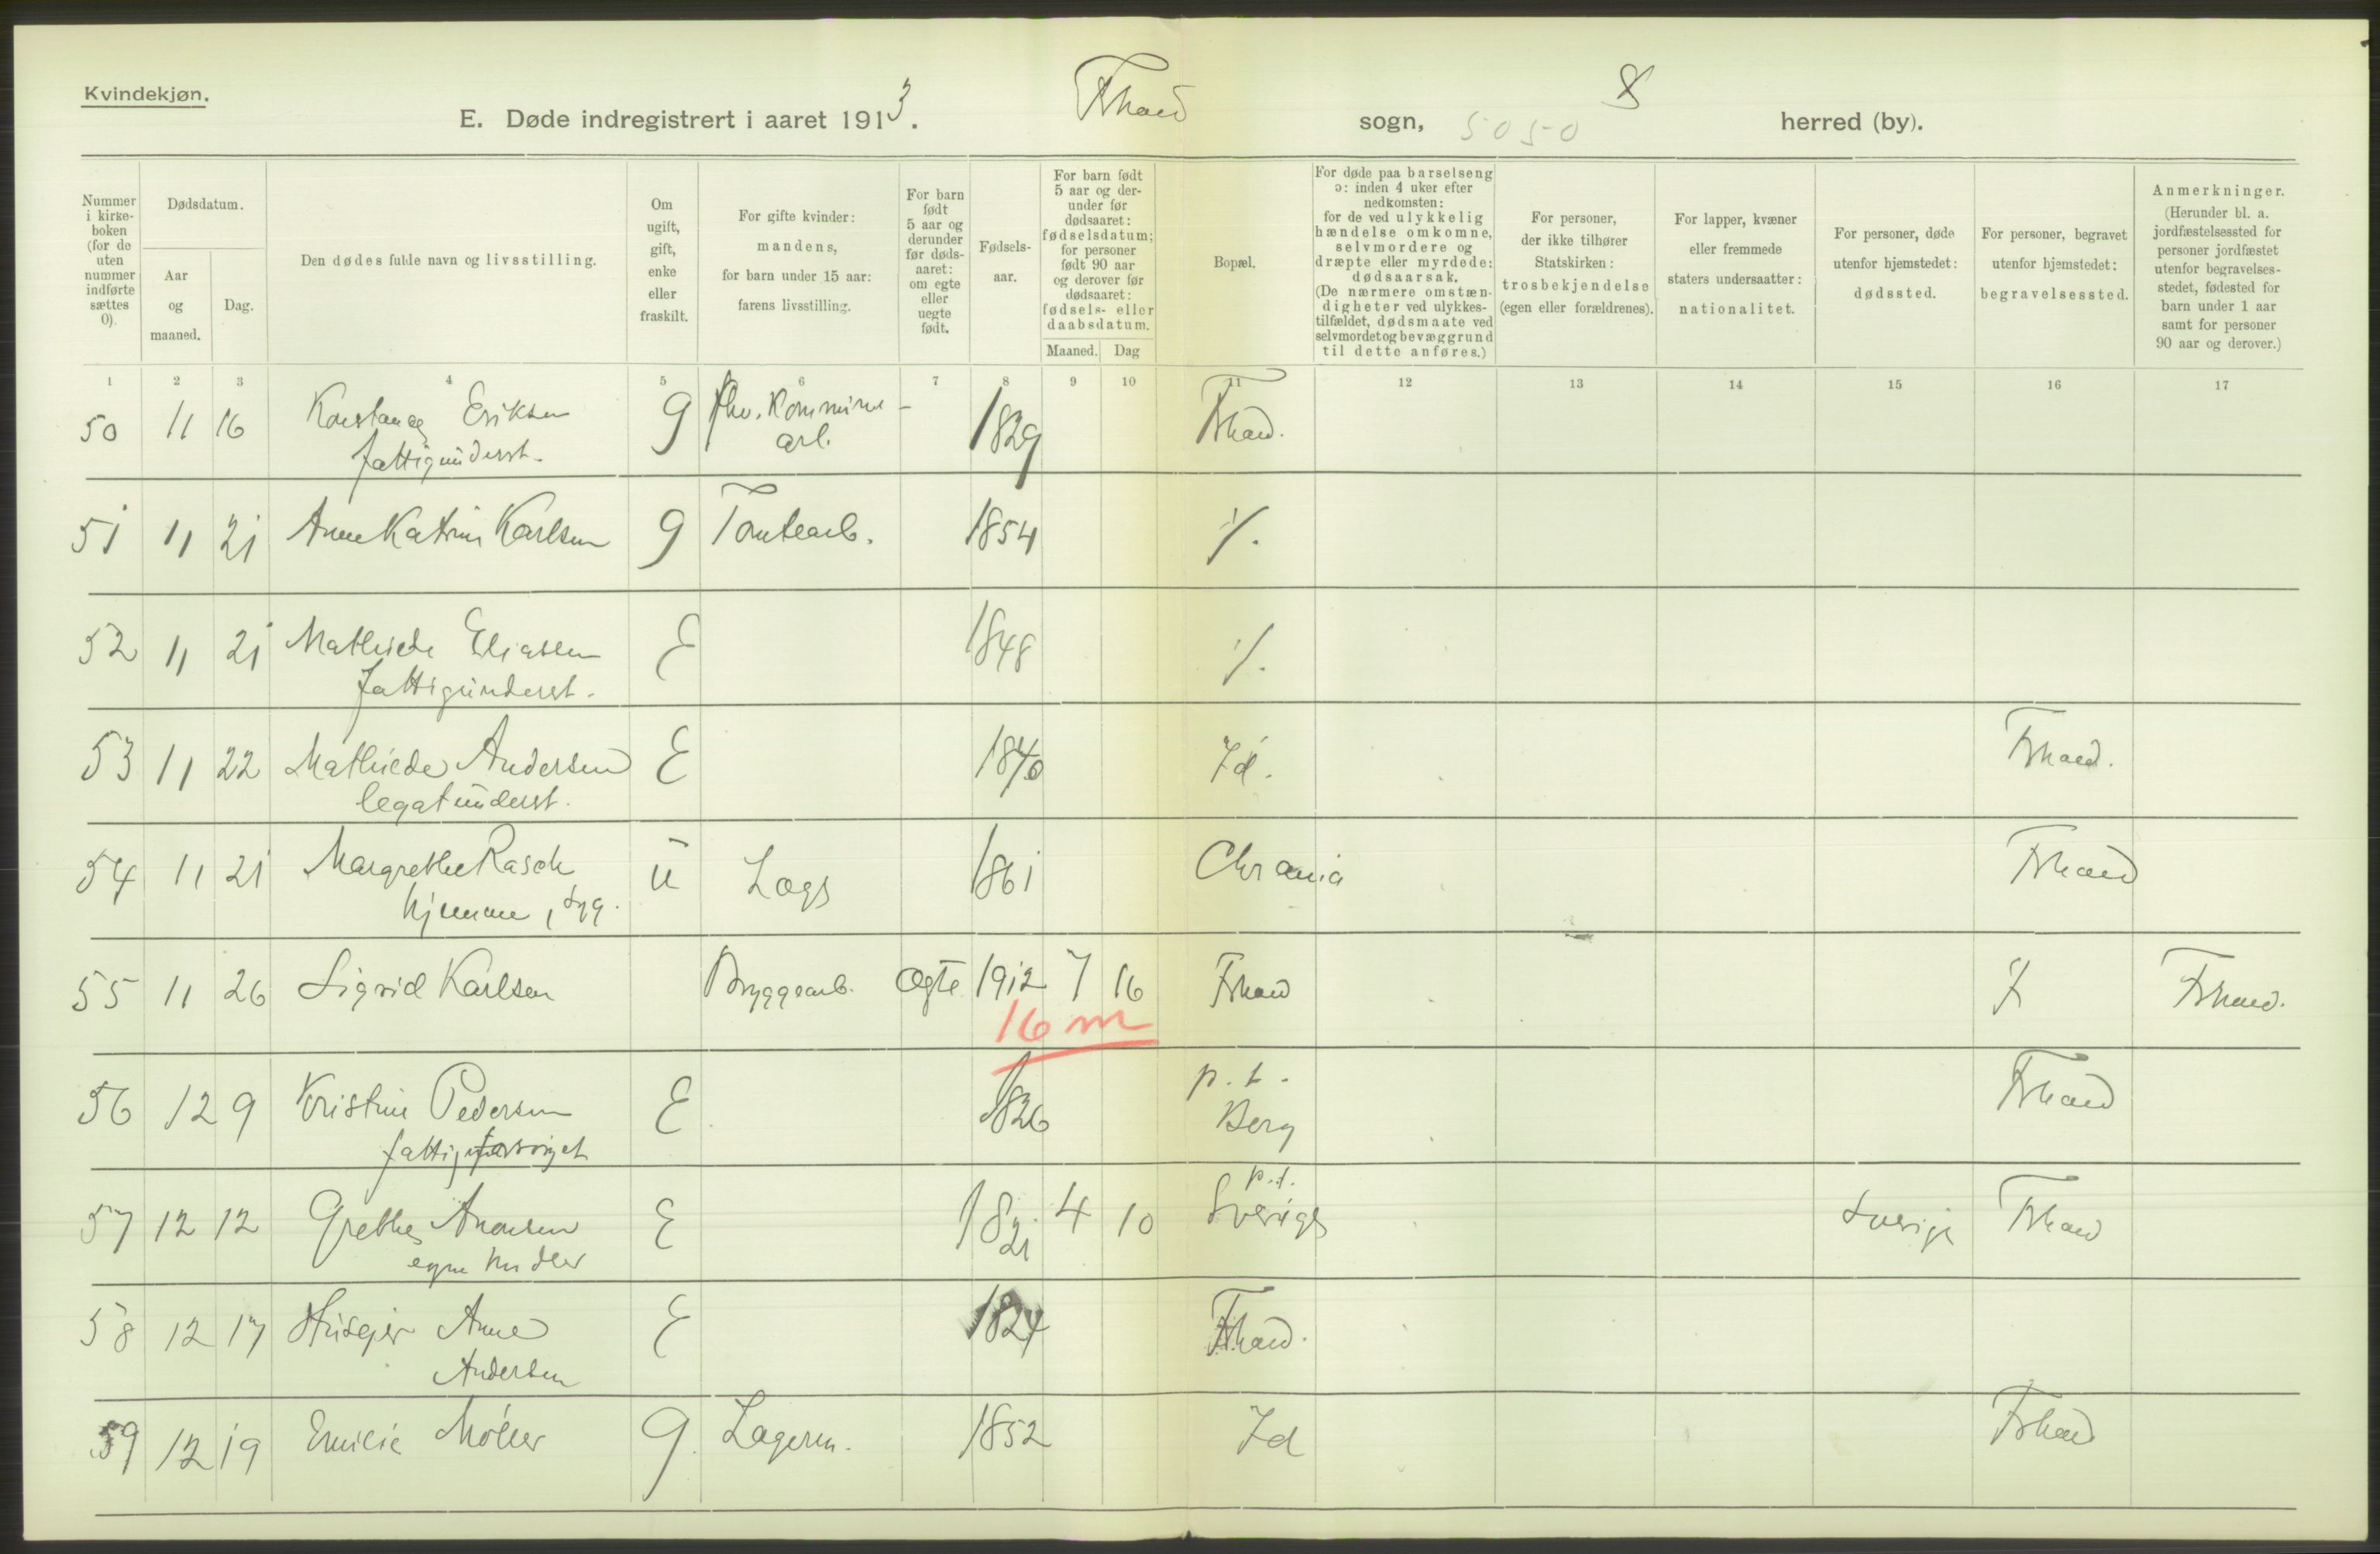 Kvindekjøn.
E. Døde indregistrert i aaret 1913. Fhald sogn, 5050 8 herred (by).
Nummer i kirkeboken (for de uten nummer indførte sættes 0).
Dødsdatum.
Aar og maaned.
Dag.
Den dødes fulde navn og livsstilling.
Om ugift, gift, enke eller fraskilt.
For gifte kvinder: mandens, for barn under 15 aar: farens livsstilling.
For barn født 5 aar og derunder før dødsaaret: om egte eller uegte født.
Fødselsaar.
For barn født 5 aar og derunder før dødsaaret: fødselsdatum; for personer født 90 aar og derover før dødsaaret: fødsels- eller daabsdatum.
Maaned. Dag
Bopæl.
For døde paa barselseng ɔ: inden 4 uker efter nedkomsten: for de ved ulykkelig hændelse omkomne, selvmordere og dræpte eller myrdede: dødsaarsak. (De nærmere omstændigheter ved ulykkestilfældet, dødsmaate ved selvmordet og bevæggrund til dette anføres.)
For personer, der ikke tilhører Statskirken: trosbekjendelse (egen eller forældrenes).
For lapper, kvæner eller fremmede staters undersaatter: nationalitet.
For personer, døde utenfor hjemstedet: dødssted.
For personer, begravet utenfor hjemstedet: begravelsessted.
Anmerkninger. (Herunder bl. a. jordfæstelsessted for personer jordfæstet utenfor begravelsesstedet, fødested for barn under 1 aar samt for personer 90 aar og derover.)
1 2 3 4 5 6 7 8 9 10 11 12 13 14 15 16 17
50 11 16 Konstance Eriksen g fhv. Kommune- 1829 Fhald.
fattigunderst. arb.
51 11 21 Anne Katrine Karlsen g Tomtearb. 1854 ./.
52 11 21 Mathilde Eliassen E 1848 ./.
fattigunderst.
53 11 22 Mathilde Andersen E 1840 Id. Fhald.
legatunderst.
54 11 21 Margrethe Rasch u Logs 1861 Chrania Fhald
hjemme, syg.
55 11 26 Sigrid Karlsen Bryggearb. Ogte 1912 7 16 Fhald Fhald.
16 m
56 12 9 Kristine Pedersen E 1826 p.t. Berg Fhald
fattigforsørget
57 12 12 Grethe E 1821 4 10 p.t. Sverige Sverige Fhald
egne midler
58 12 17 Husejer Anne E 1824 Fhald.
Andersen
59 12 19 Emilie Møller g. Lagerm. 1852 Id Fhald